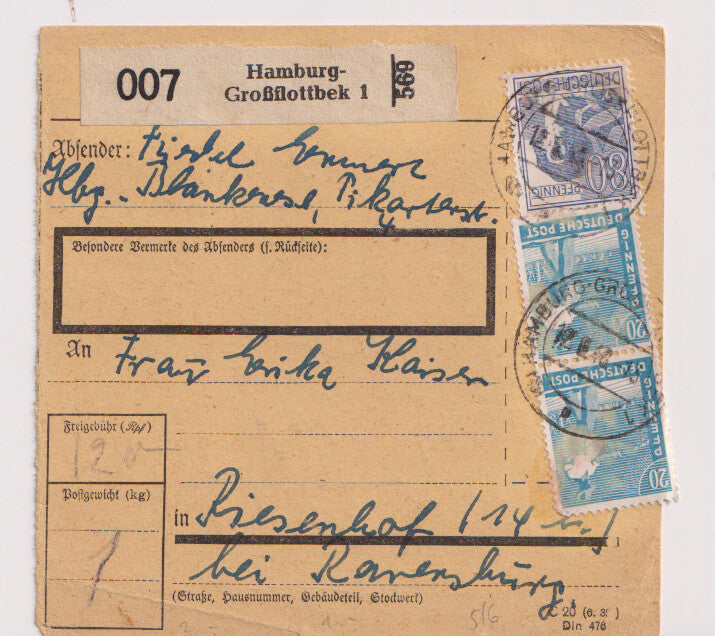 007 Hamburg-
Großflottbek 1 569
DEUTSCHE POST
80 PFENNIG
Absender:
Hbg. - Blankenese,
4
Besondere Vermerke des Absenders (s. Rückseite):
DEUTSCHE POST
20 PFENNIG
HAMBURG-GRO
An Frau Erika Kaiser
DEUTSCHE POST
20 PFENNIG
Freigebühr (Rpf)
120
Postgewicht (kg)
in Riesenhof (14 b)
bei Ravensburg.
(Straße, Hausnummer, Gebäudeteil, Stockwerk)
5/6
C 20 (6. 35)
Din 476